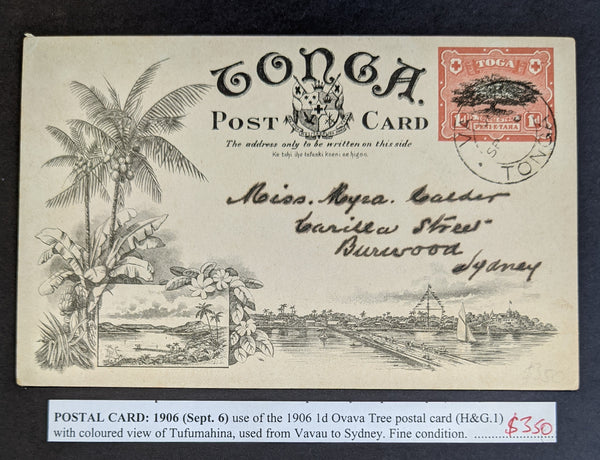 TONGA.
POST CARD
The address only to be written on this side
TOGA
1d 1d
PENI E TAHA
TONGA
Miss. Myra Calder
Carilla Street
Burwood
Sydney
£350
POSTAL CARD: 1906 (Sept. 6) use of the 1906 1d Ovava Tree postal card (H&G.1)
with coloured view of Tufumahina, used from Vavau to Sydney. Fine condition. ............ $350